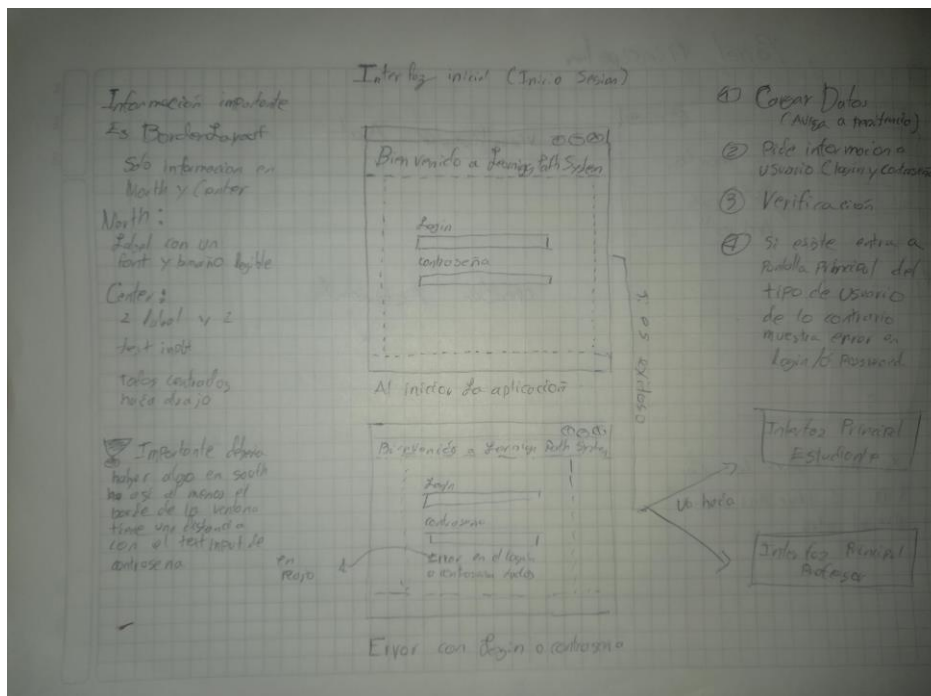 Interfaz inicial (Inicio Sesion)
Información importante
Es BorderLayout
Solo informacion en
North y Center
North:
Label con un
font y tamaño legible
Center:
2 label y 2
text input
todos centrados
hacia abajo
Importante debería
haber algo en south
no así al menos el
borde de la ventana
tiene una distancia
con el text input de
contraseña
Bienvenido a Learning Path System
Login
contraseña
Al iniciar la aplicación
Bienvenido a Learning Path System
Login
contraseña
error en el login
o contraseña
en
rojo
Error con Login o contraseña
1 Cargar Datos
2 Pide informacion a
usuario (login y contraseña
3 Verificación
4 Si existe entra a
Pantalla Principal del
tipo de usuario
de lo contrario
muestra error en
Login/o Password
Si es exitoso
va hacia
Interfaz Principal
Estudiante
Interfaz Principal
Profesor